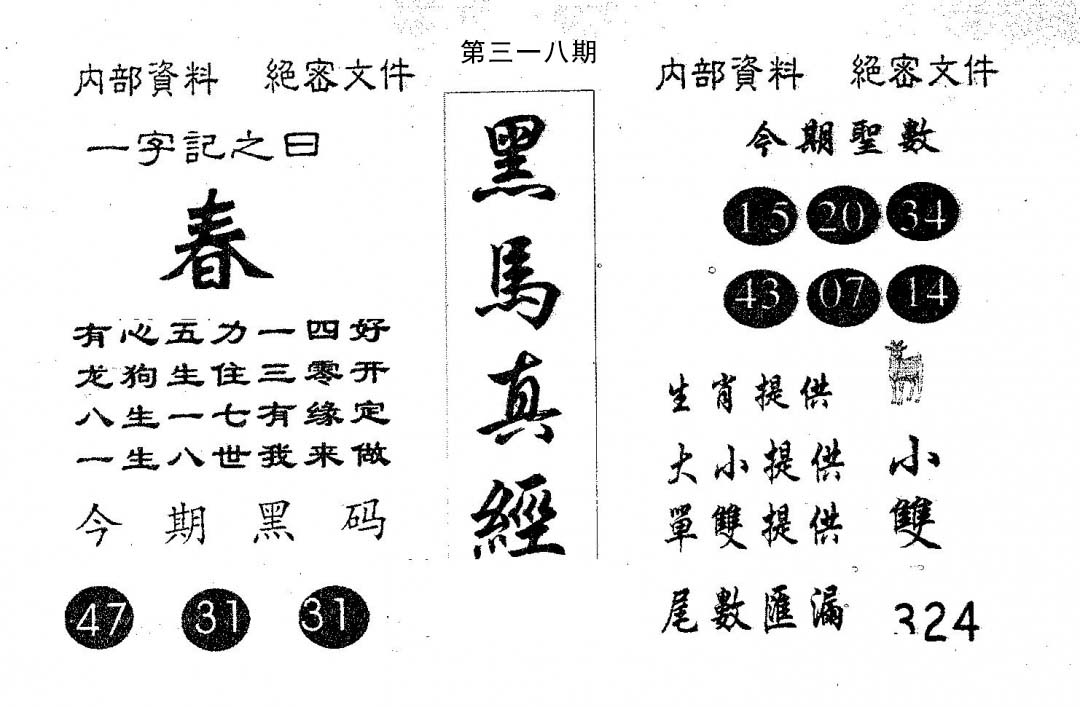 第三一八期
内部資料 絕密文件
一字記之曰
春
有心五力一四好
龙狗生住三零开
八生一七有缘定
一生八世我来做
今期黑码
47 31 31
黑馬真經
内部資料 絕密文件
今期聖數
15 20 34
43 07 14
生肖提供
大小提供 小
單雙提供 雙
尾數匯漏 324